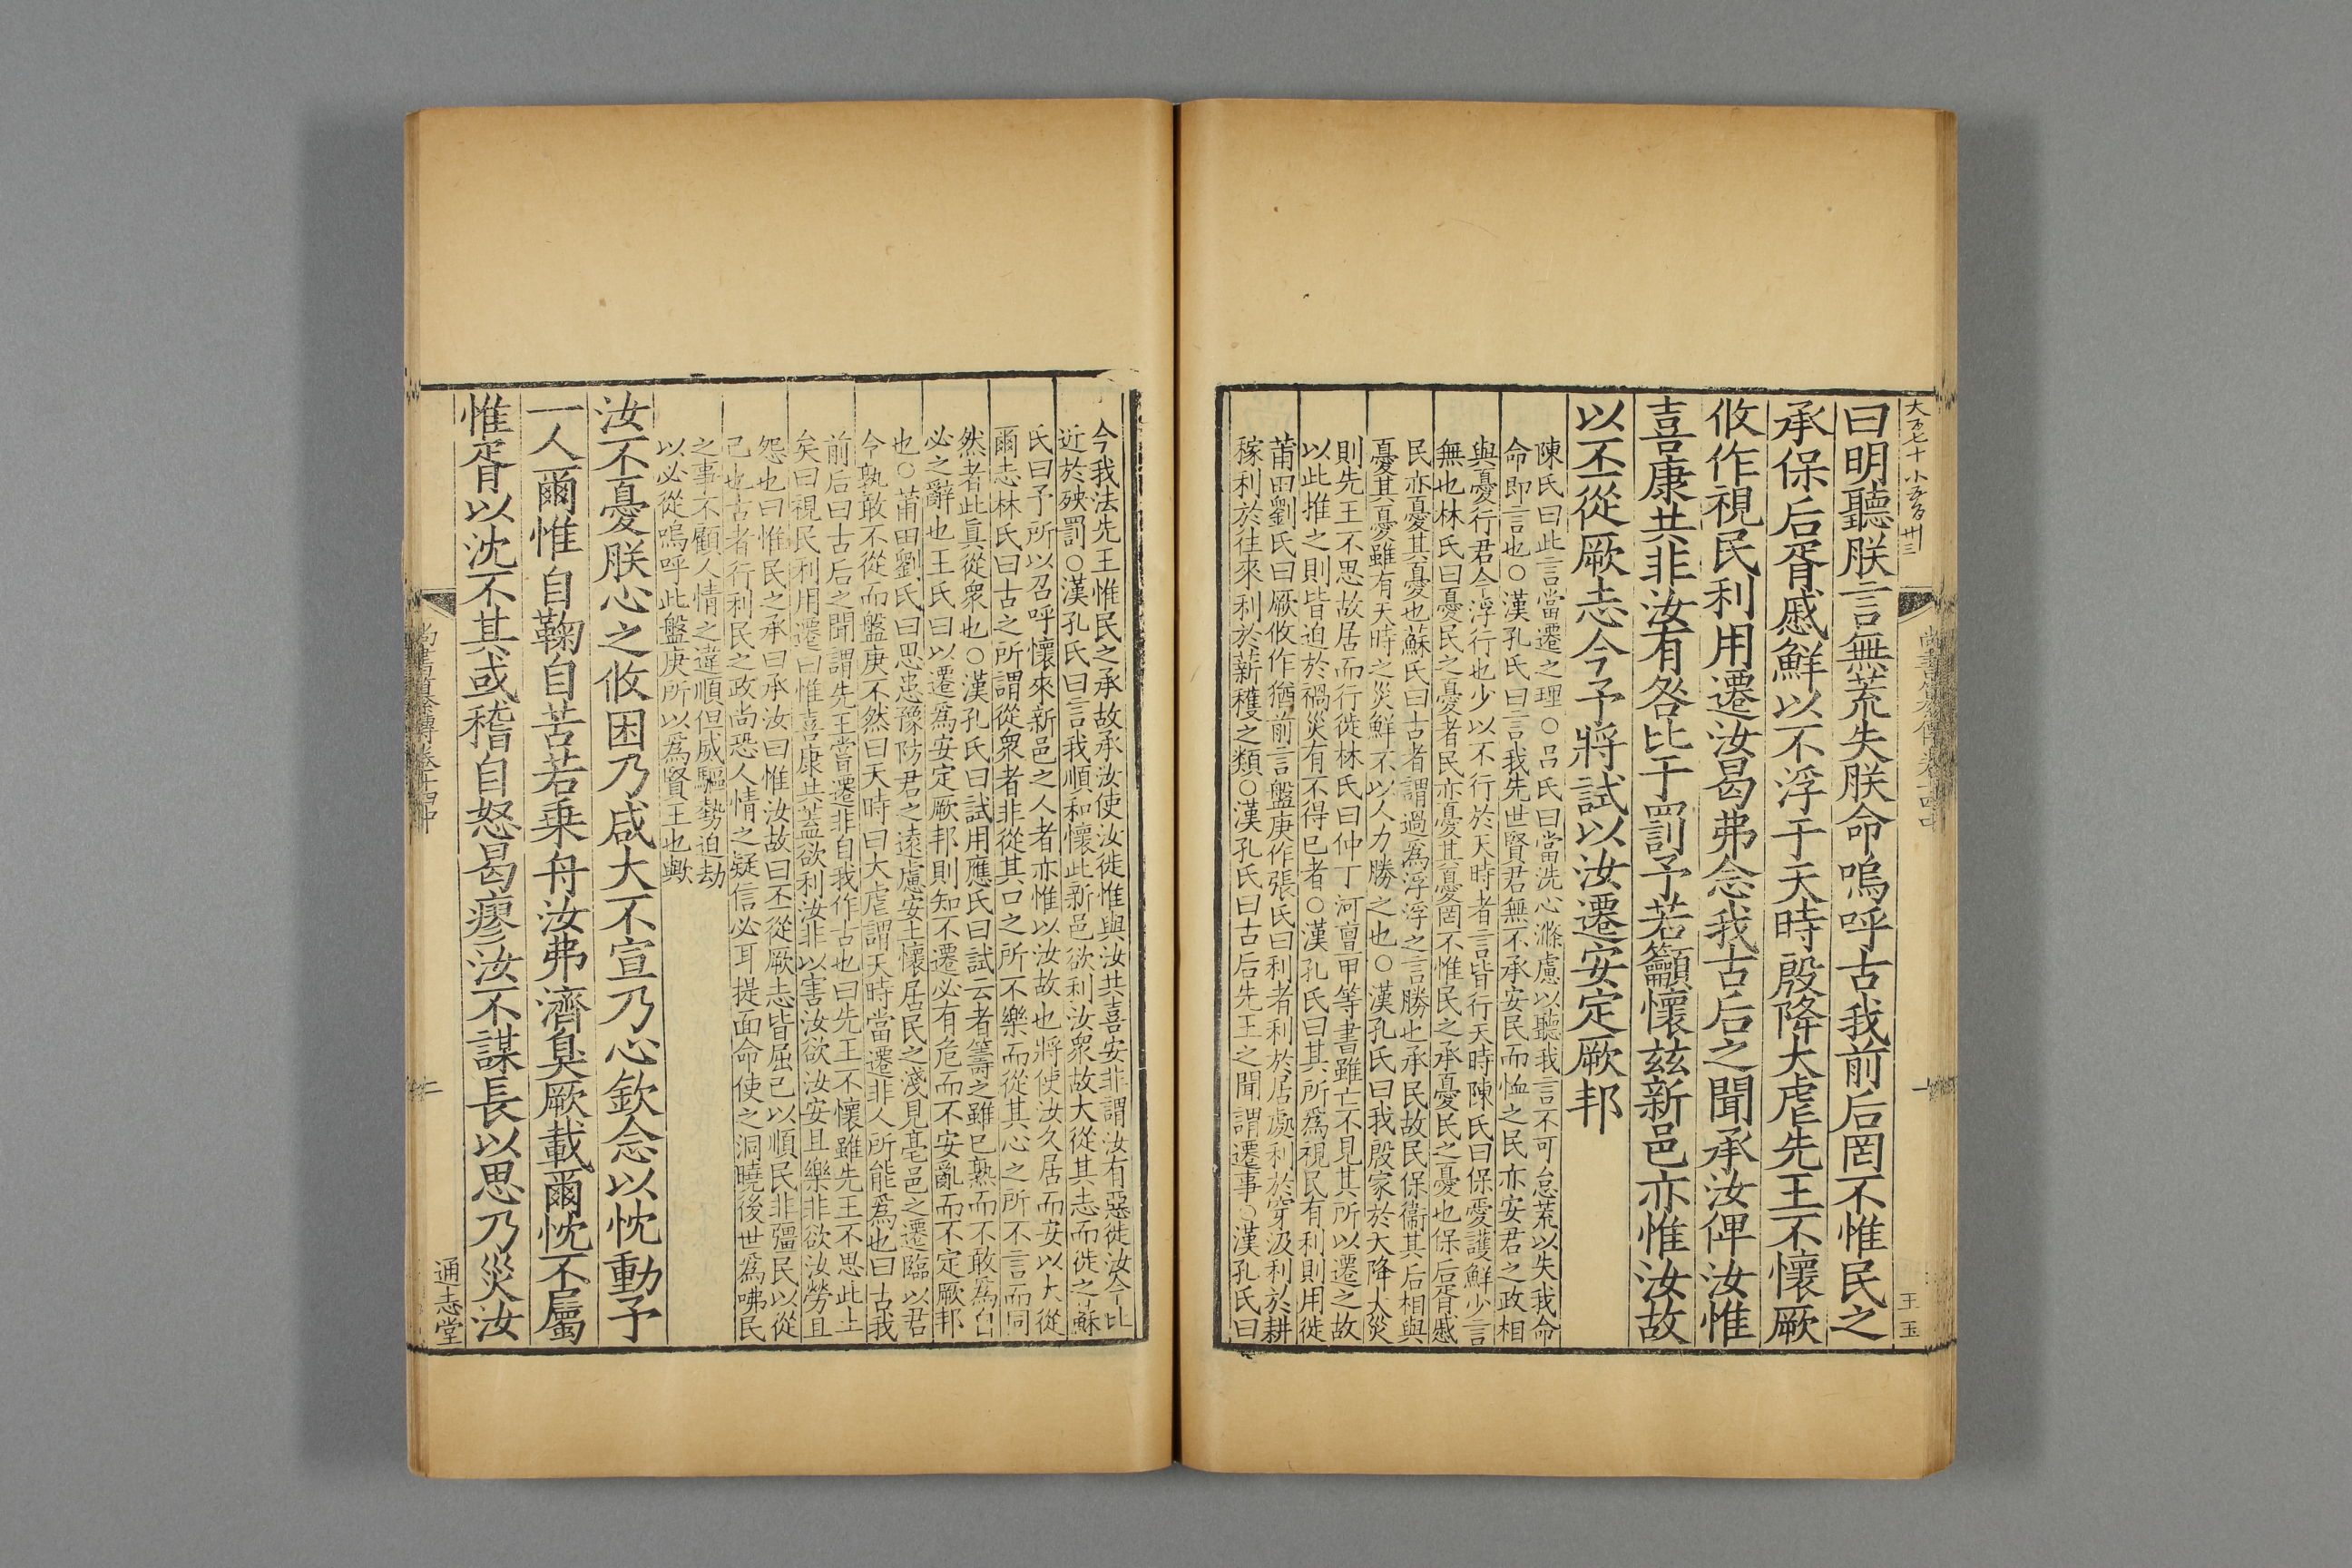 大百七十 小五百卅三
王玉
曰明聽朕言無荒失朕命嗚呼古我前后罔不惟民之
承保后胥慼鮮以不浮于天時殷降大虐先王不懷厥
攸作視民利用遷汝曷弗念我古后之聞承汝俾汝惟
喜康共非汝有咎比于罰予若籲懷茲新邑亦惟汝故
以丕從厥志今予將試以汝遷安定厥邦
陳氏曰此言當遷之理○呂氏曰當洗心滌慮以聽我言不可怠荒以失我命
命即言也○漢孔氏曰言我先世賢君無不承安民而恤之民亦安君之政相
與憂行君令浮行也少以不行於天時者言皆行天時陳氏曰保愛護鮮少言
無也林氏曰憂民之憂者民亦憂其憂罔不惟民之承憂民之憂也保后胥慼
民亦憂其憂也蘇氏曰古者謂過爲浮浮之言勝也承民故民保衞其后相與
憂其憂雖有天時之災鮮不以人力勝之也○漢孔氏曰我殷家於天降大災
則先王不思故居而行徙林氏曰仲丁河亶甲等書雖亡不見其所以遷之故
以此推之則皆迫於禍災有不得已者○漢孔氏曰其所爲視民有利則用徙
莆田劉氏曰厥攸作猶前言盤庚作張氏曰利者利於居處利於穿汲利於耕
稼利於往來利於薪穫之類○漢孔氏曰古后先王之聞謂遷事○漢孔氏曰
今我法先王惟民之承故承汝使汝徙惟與汝共喜安非謂汝有惡徙汝令比
近於殃罰○漢孔氏曰言我順和懷此新邑欲利汝衆故大從其志而徙之蘇
氏曰予所以召呼懷來新邑之人者亦惟以汝故也將使汝久居而安以大從
爾志林氏曰古之所謂從衆者非從其口之所不樂而從其心之所不言而同
然者此真從衆也○漢孔氏曰試用應氏曰試云者籌之雖已熟而不敢爲
必之辭也王氏曰以遷爲安定厥邦則知不遷必有危而不安亂而不定厥邦
也○莆田劉氏曰思患豫防君之遠慮安土懷居民之淺見亳邑之遷臨以君
令孰敢不從而盤庚不然曰天時曰大虐謂天時當遷非人所能爲也曰古我
前后曰古后之聞謂先王當遷非自我作古也曰先王不懷雖先王不思此土
矣曰視民利用遷曰惟喜康共蓋欲利汝非以害汝欲汝安且樂非欲汝勞且
怨也曰惟民之承曰承汝曰惟汝故曰丕從厥志皆屈已以順民非彊民以從
己也古者行利民之政尚恐人情之疑信必耳提面命使之洞曉後世爲咈民
之事不顧人情之違順但威驅勢迫劫
以必從嗚呼此盤庚所以爲賢王也歟
汝不憂朕心之攸困乃咸大不宣乃心欽念以忱動予
一人爾惟自鞠自苦若乘舟汝弗濟臭厥載爾忱不屬
惟胥以沈不其或稽自怒曷瘳汝不謀長以思乃災汝
尚書纂傳卷十四中
二
通志堂